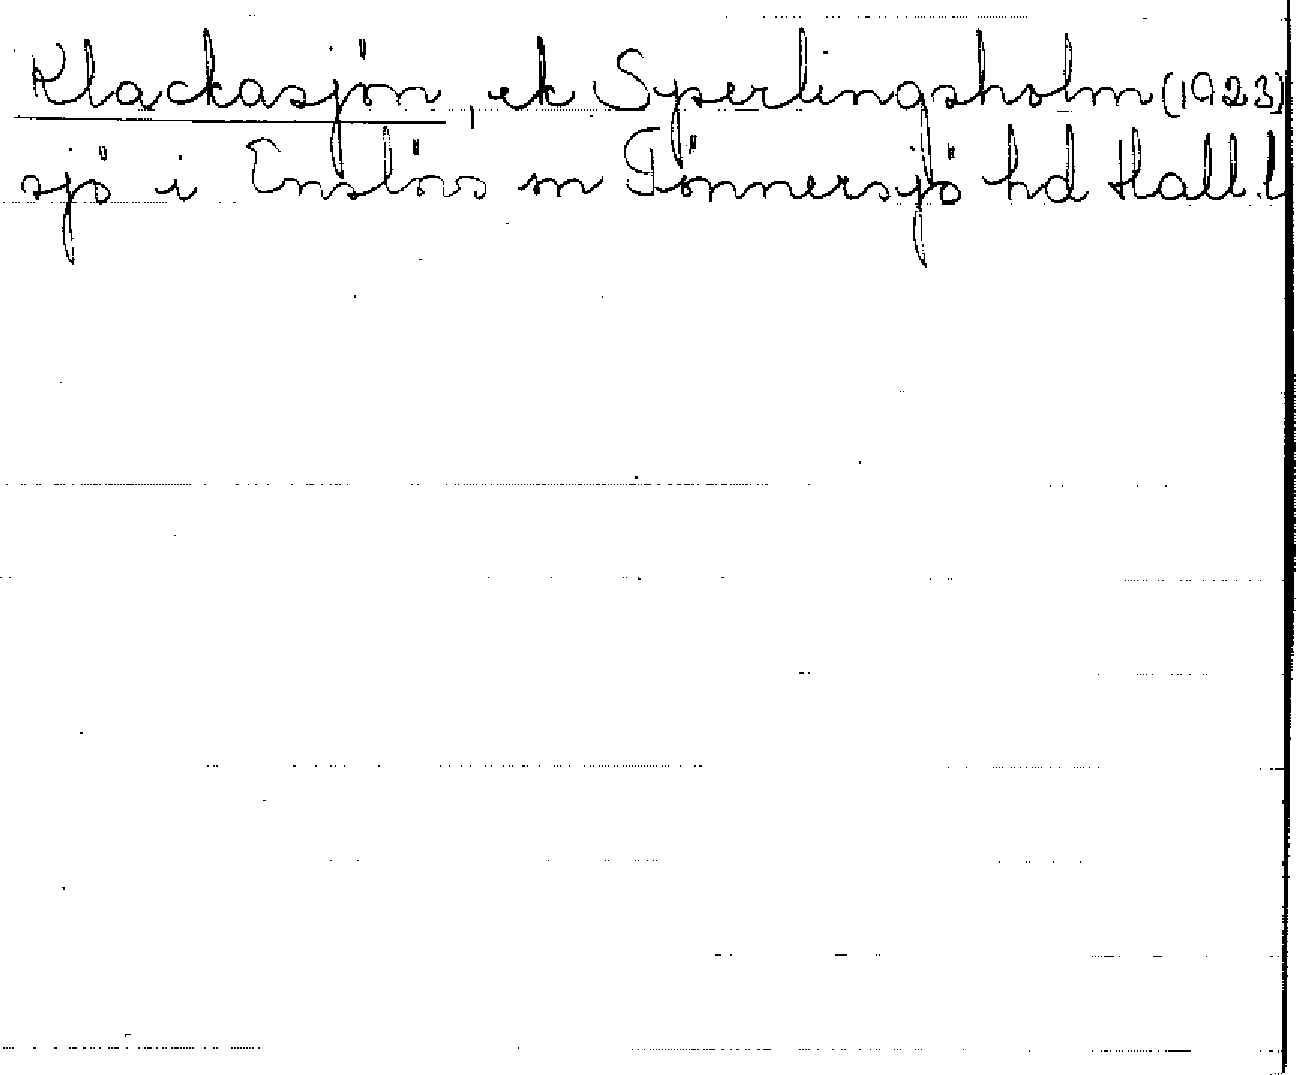 Klackasjön, ek Sperlingsholm (1923)
sjö i Enslövs sn Tönnersjö hd Hall.l